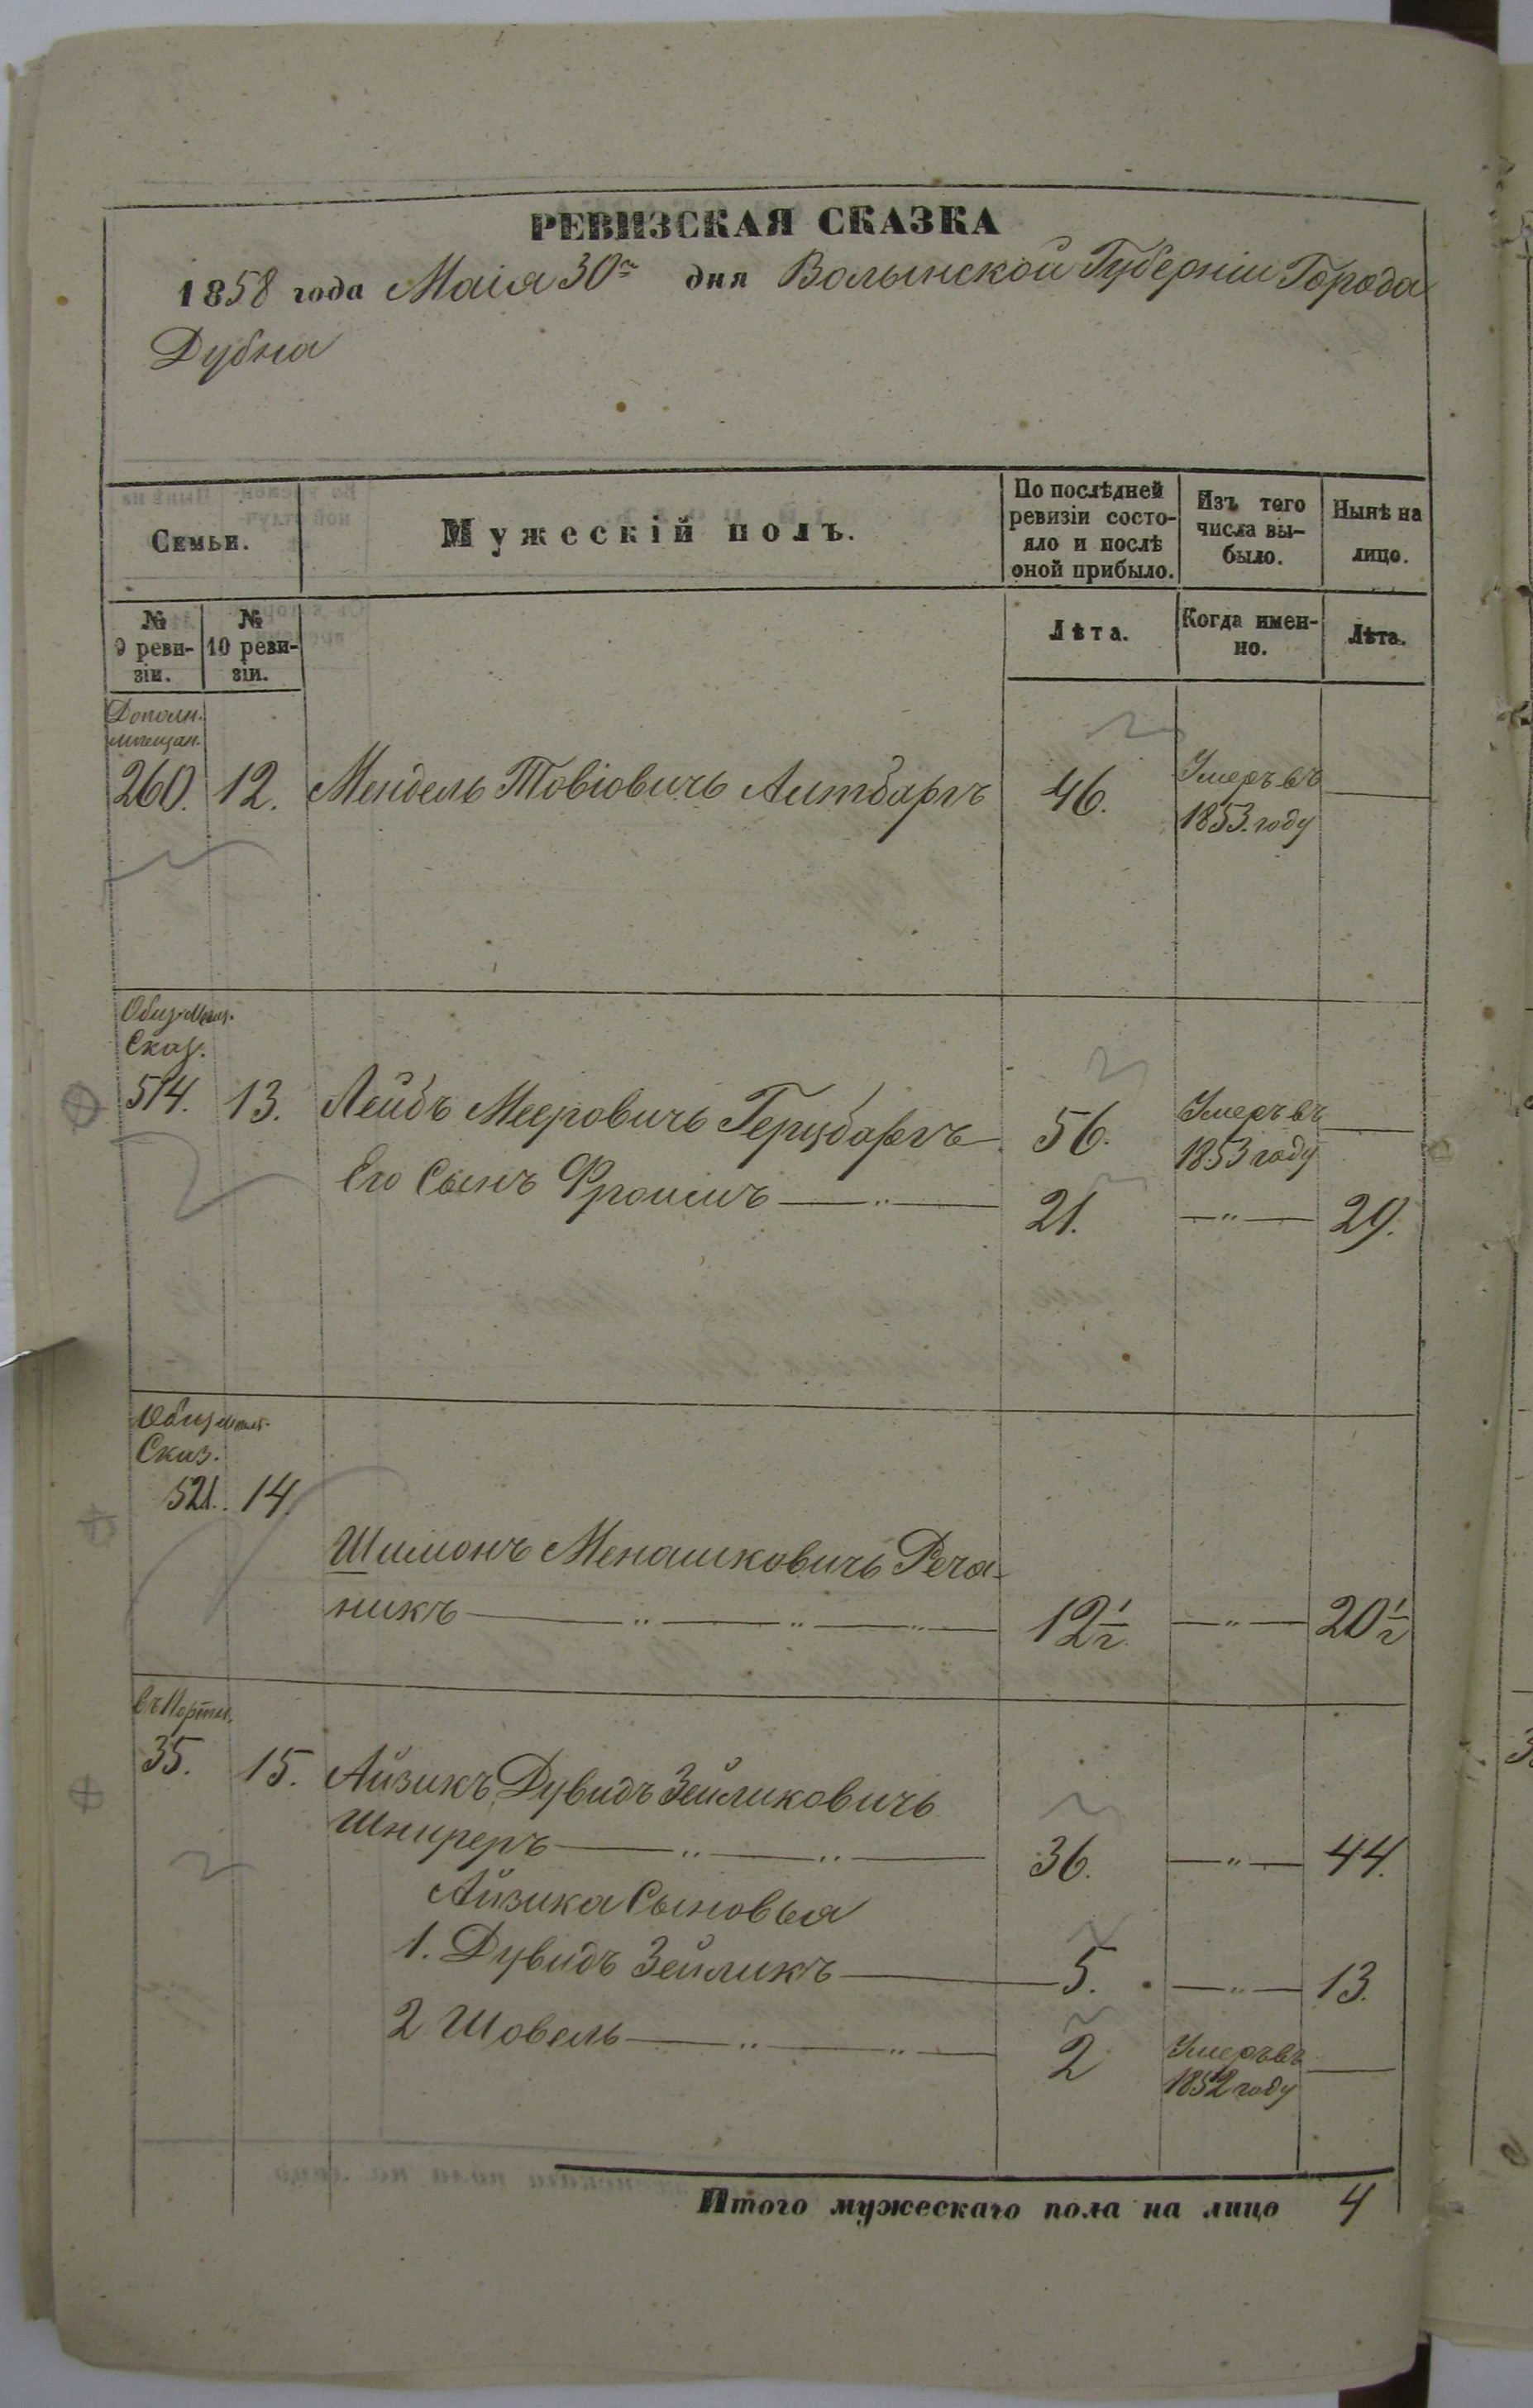 РЕВИЗСКАЯ СКАЗКА
1858 года Маія 30го дня Волынской Губерніи Города
Дубна
Семьи.
Мужескій полъ.
По послѣдней
ревизіи состо-
яло и послѣ
оной прибыло.
Изъ того
числа вы-
было.
Нынѣ на
лицо.
№
9 реви-
зіи.
№
10 реви-
зіи.
Лѣта.
Когда имен-
но.
Лѣта.
Дополн.
мѣщан.
260. 12. Мендель Товіовичь Аитбаргъ 46. Умеръ въ
1853. году
Общ. Мѣщ.
Сказ.
514. 13. Лейбъ Мееровичь Герцбаргъ 56. Умеръ въ
1853 году
Его Сынъ Фроимъ — " — 21. — " — 29.
Общ. мѣщ.
Сказ.
521. 14.
Шимонъ Менашковичь Реча-
никъ — " — " — " — 12 1/2 — " — 20 1/2
35. 15. Айзикъ Дувидъ Зейликовичь
Шниреръ — " — " — 36. — " — 44.
Айзика Сыновья
1. Дувидъ Зейликъ — 5. — " — 13.
2 Шовель — " — " — 2 Умеръ въ
1852 году
Итого мужескаго пола на лицо 4